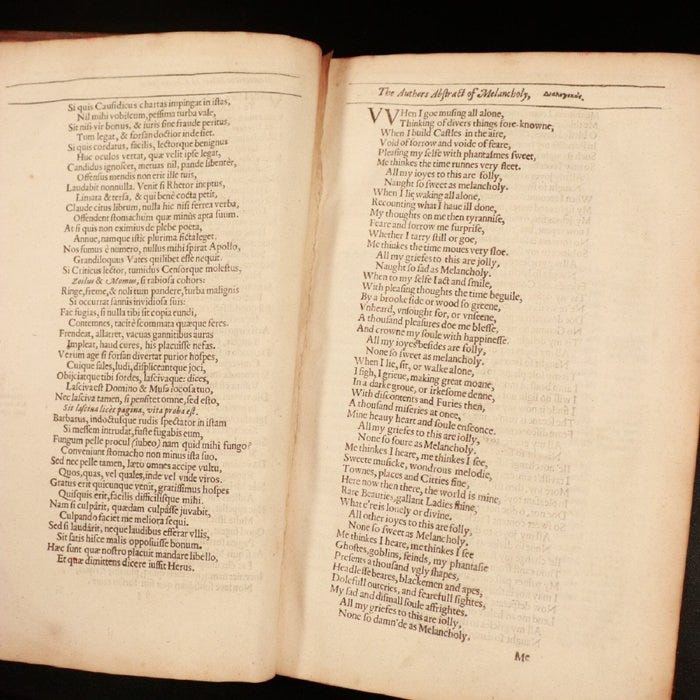 Si quis Causidicus chartas impingat in istas,
Nil mihi vobiscum, pessima turba vale,
Sit nisi vir bonus, & iuris sine fraude peritus,
Tum legat, & forsan doctior inde siet.
Si quis cordatus, facilis, lectorque benignus
Huc oculos vertat, quæ velit ipse legat,
Candidus ignoscet, metuas nil, pande libenter,
Offensus mendis non erit ille tuis,
Laudabit nonnulla. Venit si Rhetor ineptus,
Limata & tersa, & qui benè cocta petit,
Claude citus librum, nulla hic nisi ferrea verba,
Offendent stomachum quæ minùs apta suum.
At si quis non eximius de plebe poeta,
Annue, namque istic plurima ficta leget.
Nos sumus è numero, nullus mihi spirat Apollo,
Grandiloquus Vates quilibet esse nequit.
Si Criticus lector, tumidus Censorque molestus,
Zoilus & Momus, si rabiosa cohors:
Ringe, freme, & noli tum pandere, turba malignis
Si occurrat sannis invidiosa suis:
Fac fugias, si nulla tibi sit copia eundi,
Contemnes, tacitè scommata quæque feres.
Frendeat, allatret, vacuas gannitibus auras
Impleat, haud cures, his placuisse nefas.
Verum age si forsan divertat purior hospes,
Cuique sales, ludi, displiceantque joci,
Objiciatque tibi sordes, lascivaque: dices,
Lasciva est Domino & Musa jocosa tuo,
Nec lasciva tamen, si pensitet omne, sed esto,
Sit lasciva licèt pagina, vita proba est.
Barbarus, indoctusque rudis spectator in istam
Si messem intrudat, fuste fugabis eum,
Fungum pelle procul (iubeo) nam quid mihi fungo?
Conveniunt stomacho non minus ista suo.
Sed nec pelle tamen, læto omnes accipe vultu,
Quos, quas, vel quales, inde vel unde viros.
Gratus erit quicunque venit, gratissimus hospes
Quisquis erit, facilis difficilisque mihi.
Nam si culpârit, quædam culpasse juvabit,
Culpando faciet me meliora sequi.
Sed si laudârit, neque laudibus efferar ullis,
Sit satis hisce malis opposuisse bonum.
Hæc sunt quæ nostro placuit mandare libello,
Et quæ dimittens dicere iussit Herus.
The Authors Abstract of Melancholy, Διαλογικῶς.
VVHen I goe musing all alone,
Thinking of divers things fore-knowne,
When I build Castles in the aire,
Void of sorrow and voide of feare,
Pleasing my selfe with phantasmes sweet,
Me thinkes the time runnes very fleet.
All my ioyes to this are folly,
Naught so sweet as melancholy.
When I lie waking all alone,
Recounting what I haue ill done,
My thoughts on me then tyrannise,
Feare and sorrow me surprise,
Whether I tarry still or goe,
Me thinkes the time moues very sloe.
All my griefes to this are jolly,
Naught so sad as Melancholy.
When to my selfe I act and smile,
With pleasing thoughts the time beguile,
By a brooke side or wood so greene,
Vnheard, vnsought for, or vnseene,
A thousand pleasures doe me blesse,
And crowne my soule with happinesse.
All my ioyes besides are folly,
None so sweet as melancholy.
When I lie, sit, or walke alone,
I sigh, I grieue, making great moane,
In a darke groue, or irkesome denne,
With discontents and Furies then,
A thousand miseries at once,
Mine heauy heart and soule ensconce.
All my griefes to this are jolly,
None so soure as Melancholy.
Me thinkes I heare, me thinkes I see,
Sweete musicke, wondrous melodie,
Townes, places and Citties fine,
Here now then there, the world is mine,
Rare Beauties, gallant Ladies shine,
What e're is louely or divine.
All other ioyes to this are folly,
None so sweet as Melancholy.
Me thinkes I heare, me thinkes I see
Ghostes, goblins, feinds, my phantasie
Presents a thousand vgly shapes,
Headlesse beares, blackemen and apes,
Dolefull outcries, and fearefull sightes,
My sad and dismall soule affrightes.
All my griefes to this are jolly,
None so damn'de as Melancholy.
Me